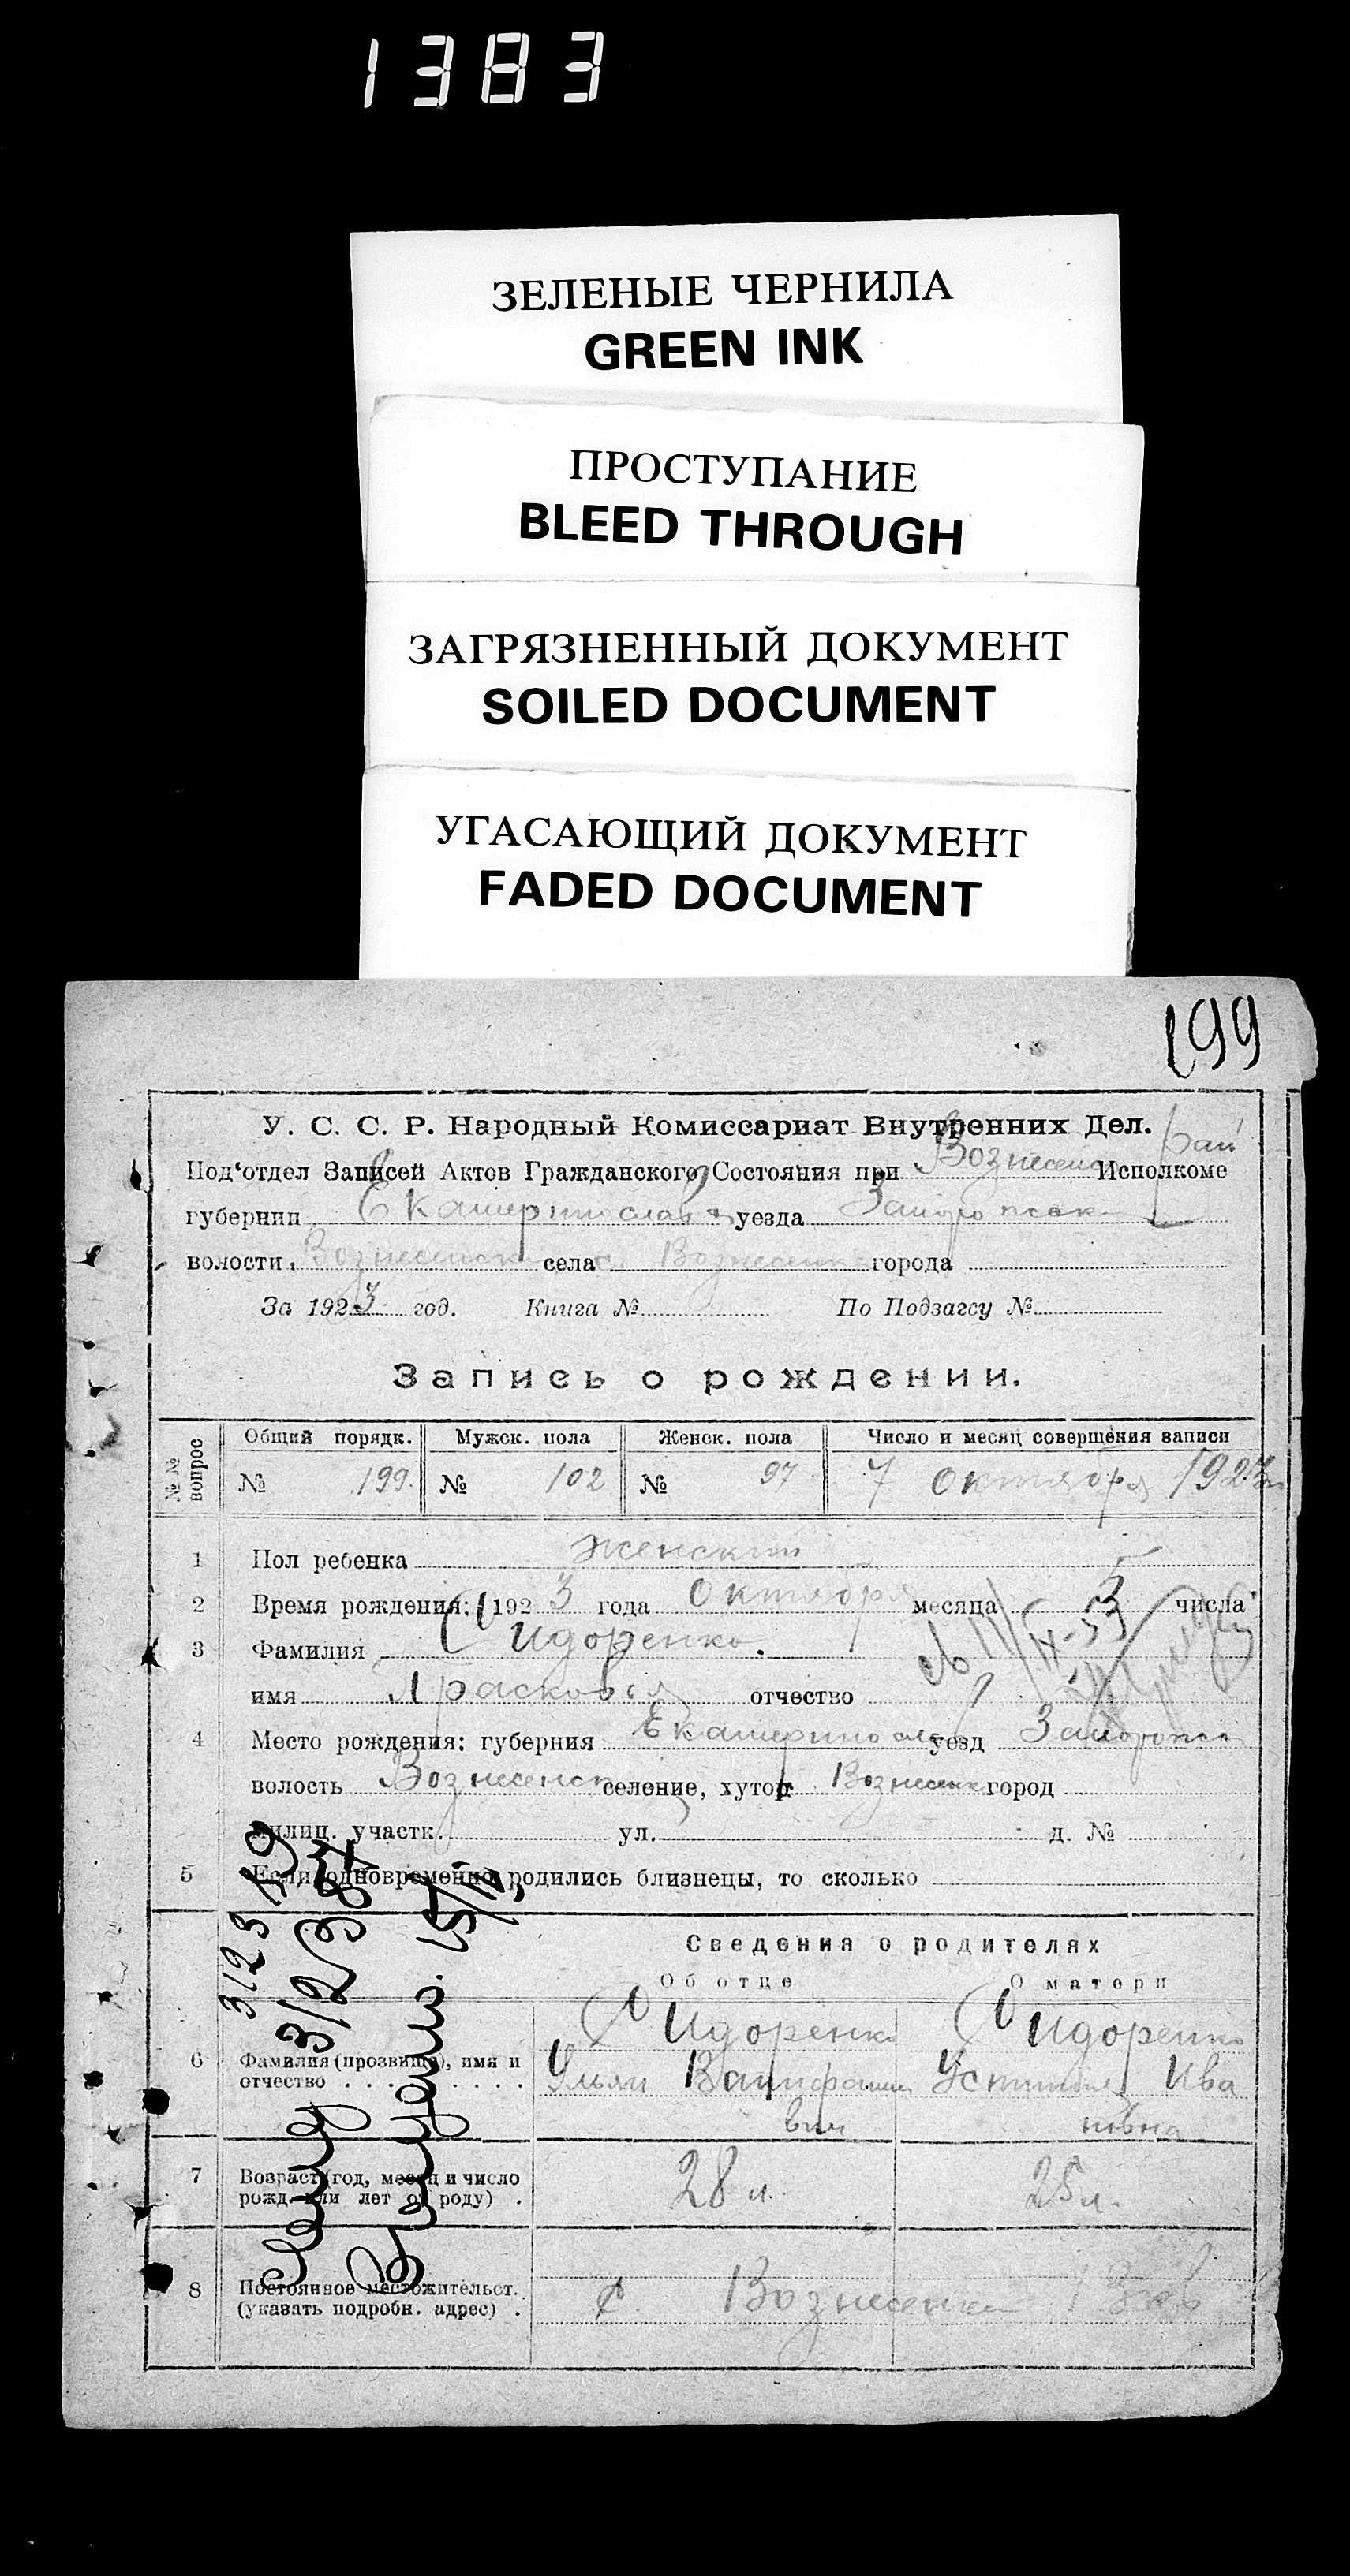 1383
ЗЕЛЕНЫЕ ЧЕРНИЛА
GREEN INK
ПРОСТУПАНИЕ
BLEED THROUGH
ЗАГРЯЗНЕННЫЙ ДОКУМЕНТ
SOILED DOCUMENT
УГАСАЮЩИЙ ДОКУМЕНТ
FADED DOCUMENT
199
У. С. С. Р. Народный Комиссариат Внутренних Дел.
Под'отдел Записей Актов Гражданского Состояния при Вознесенс Рай Исполкоме
губернии Екатеринослав уезда Запорожск
волости Вознесенск села Вознесенк города
За 1923 год. Книга № По Подзагсу №
Запись о рождении.
№№ вопрос
Общий порядк. Мужск. пола Женск. пола Число и месяц совершения записи
№ 199. № 102 № 97 7 Октября 1923
1 Пол ребенка женский
2 Время рождения: 1923 года Октября месяца 3 числа
3 Фамилия Сидоренко.
имя Прасковья отчество
4 Место рождения: губерния Екатеринослав уезд Запорожск
волость Вознесенск селение, хутор Вознесенк город
милиц. участк. ул. д. №
5 Если одновременно родились близнецы, то сколько
Сведения о родителях
Об отце О матери
6 Фамилия (прозвище), имя и
отчество
Сидоренко Сидоренко
Ульян Устинья Ива
вич новна
7 Возраст (год, месяц и число
рожд. или лет от роду)
28 л. 25 л.
8 Постоянное местожительст.
(указать подробн. адрес)
с. Вознесенка